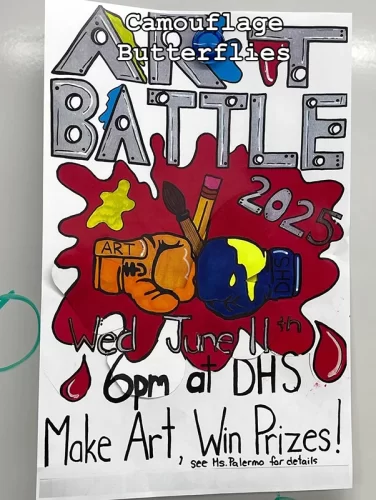 Camouflage
Butterflies
ART
BATTLE
2025
ART
DHS
Wed June 11th
6pm at DHS
Make Art, Win Prizes!
see Ms. Palermo for details